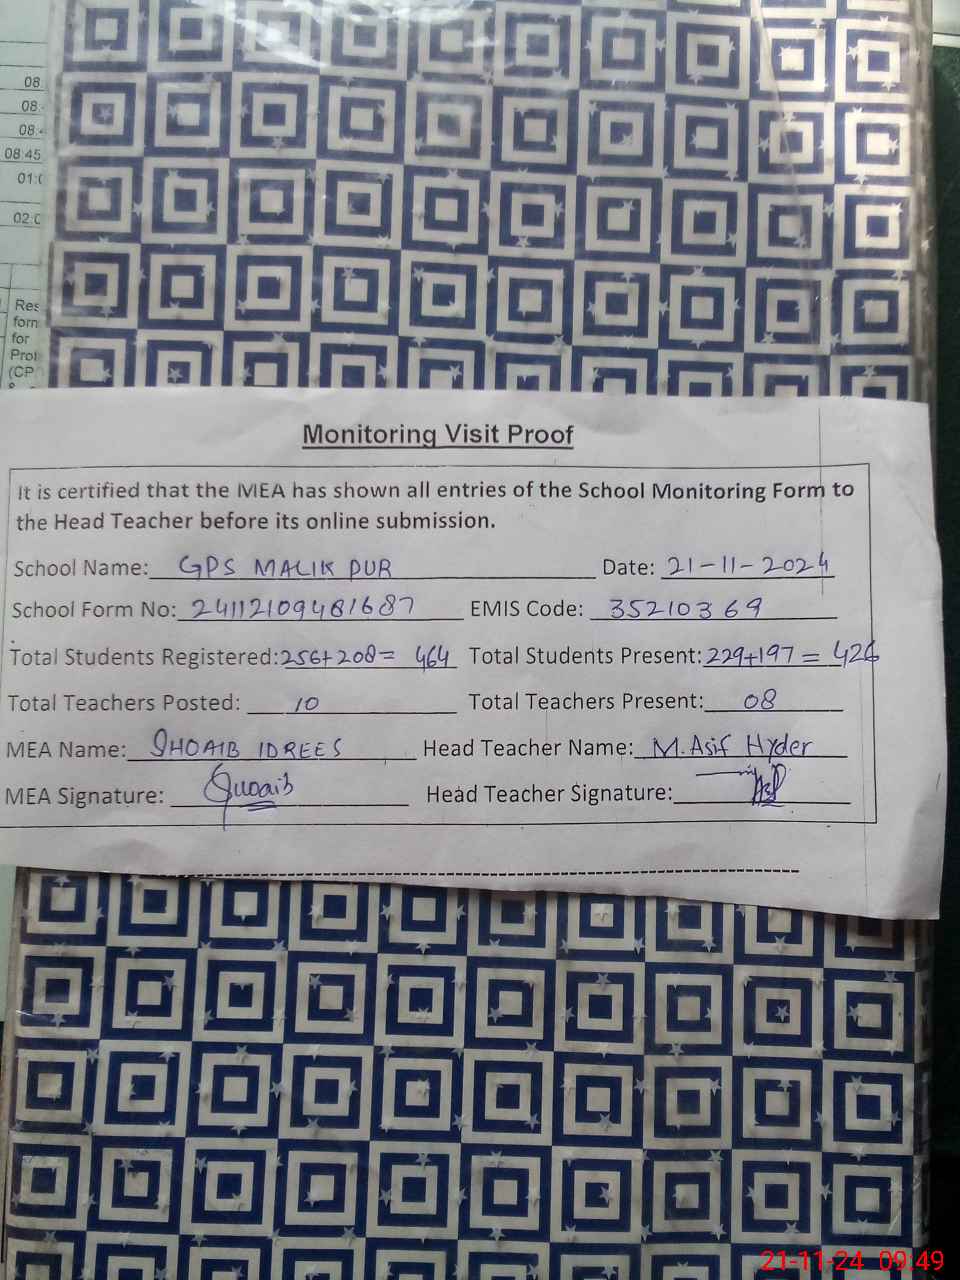 08
08
08:4
08:45
01:0
02:0
Res
forn
for
Prot
(CP
Monitoring Visit Proof
It is certified that the MEA has shown all entries of the School Monitoring Form to
the Head Teacher before its online submission.
School Name: GPS MALIK PUR Date: 21-11-2024
School Form No: 24112109481687 EMIS Code: 35210369
Total Students Registered: 256+208= 464 Total Students Present: 229+197= 426
Total Teachers Posted: 10 Total Teachers Present: 08
MEA Name: SHOAIB IDREES Head Teacher Name: M. Asif Hyder
MEA Signature: Shoaib Head Teacher Signature:
21-11-24 09:49